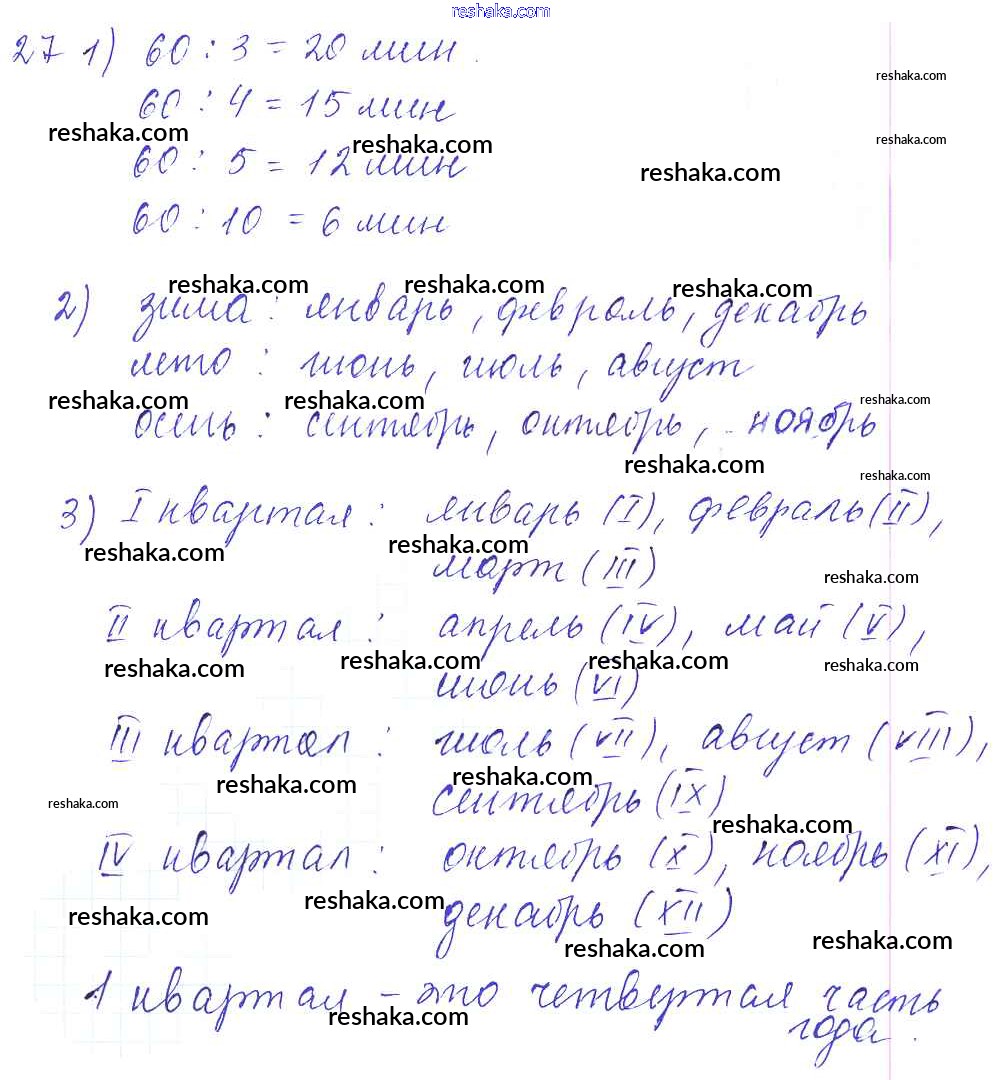 reshaka.com
27 1) 60 : 3 = 20 мин.
reshaka.com
60 : 4 = 15 мин
reshaka.com reshaka.com reshaka.com
60 : 5 = 12 мин
reshaka.com
60 : 10 = 6 мин
reshaka.com reshaka.com reshaka.com
2) зима: январь, февраль, декабрь
лето: июнь, июль, август
reshaka.com reshaka.com reshaka.com
осень: сентябрь, октябрь, ноябрь
reshaka.com reshaka.com
3) I квартал: январь (I), февраль (II),
reshaka.com reshaka.com
март (III)
reshaka.com
II квартал: апрель (IV), май (V),
reshaka.com reshaka.com reshaka.com reshaka.com
июнь (VI)
III квартал: июль (VII), август (VIII),
reshaka.com reshaka.com
сентябрь (IX)
reshaka.com reshaka.com
IV квартал: октябрь (X), ноябрь (XI),
reshaka.com reshaka.com
декабрь (XII)
reshaka.com reshaka.com
1 квартал – это четвертая часть
reshaka.com
года.